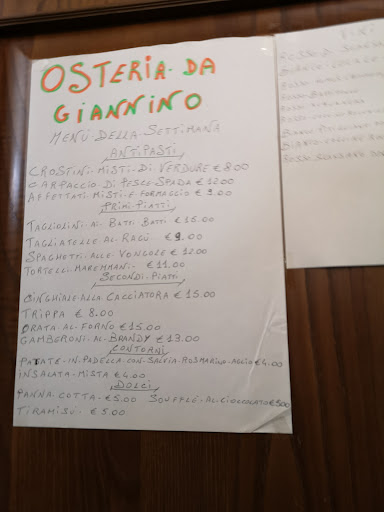 OSTERIA DA
GIANNINO
MENÙ DELLA SETTIMANA
ANTIPASTI
CROSTINI MISTI DI VERDURE € 8.00
CARPACCIO DI PESCE SPADA € 12.00
AFFETTATI MISTI E FORMAGGIO € 9.00
PRIMI PIATTI
TAGLIOLINI AI BATTI BATTI € 15.00
TAGLIATELLE AL RAGÙ € 9.00
SPAGHETTI ALLE VONGOLE € 12.00
TORTELLI MAREMMANI € 11.00
SECONDI PIATTI
CINGHIALE ALLA CACCIATORA € 15.00
TRIPPA € 8.00
ORATA AL FORNO € 15.00
GAMBERONI AL BRANDY € 13.00
CONTORNI
PATATE IN PADELLA CON SALVIA ROSMARINO AGLIO € 4.00
INSALATA MISTA € 4.00
DOLCI
PANNA COTTA € 5.00 SOUFFLÈ AL CIOCCOLATO € 5.00
TIRAMISÙ € 5.00
VINI
ROSSO
ROSSO
ROSSO
ROSSO
BIANCO
ROSSO